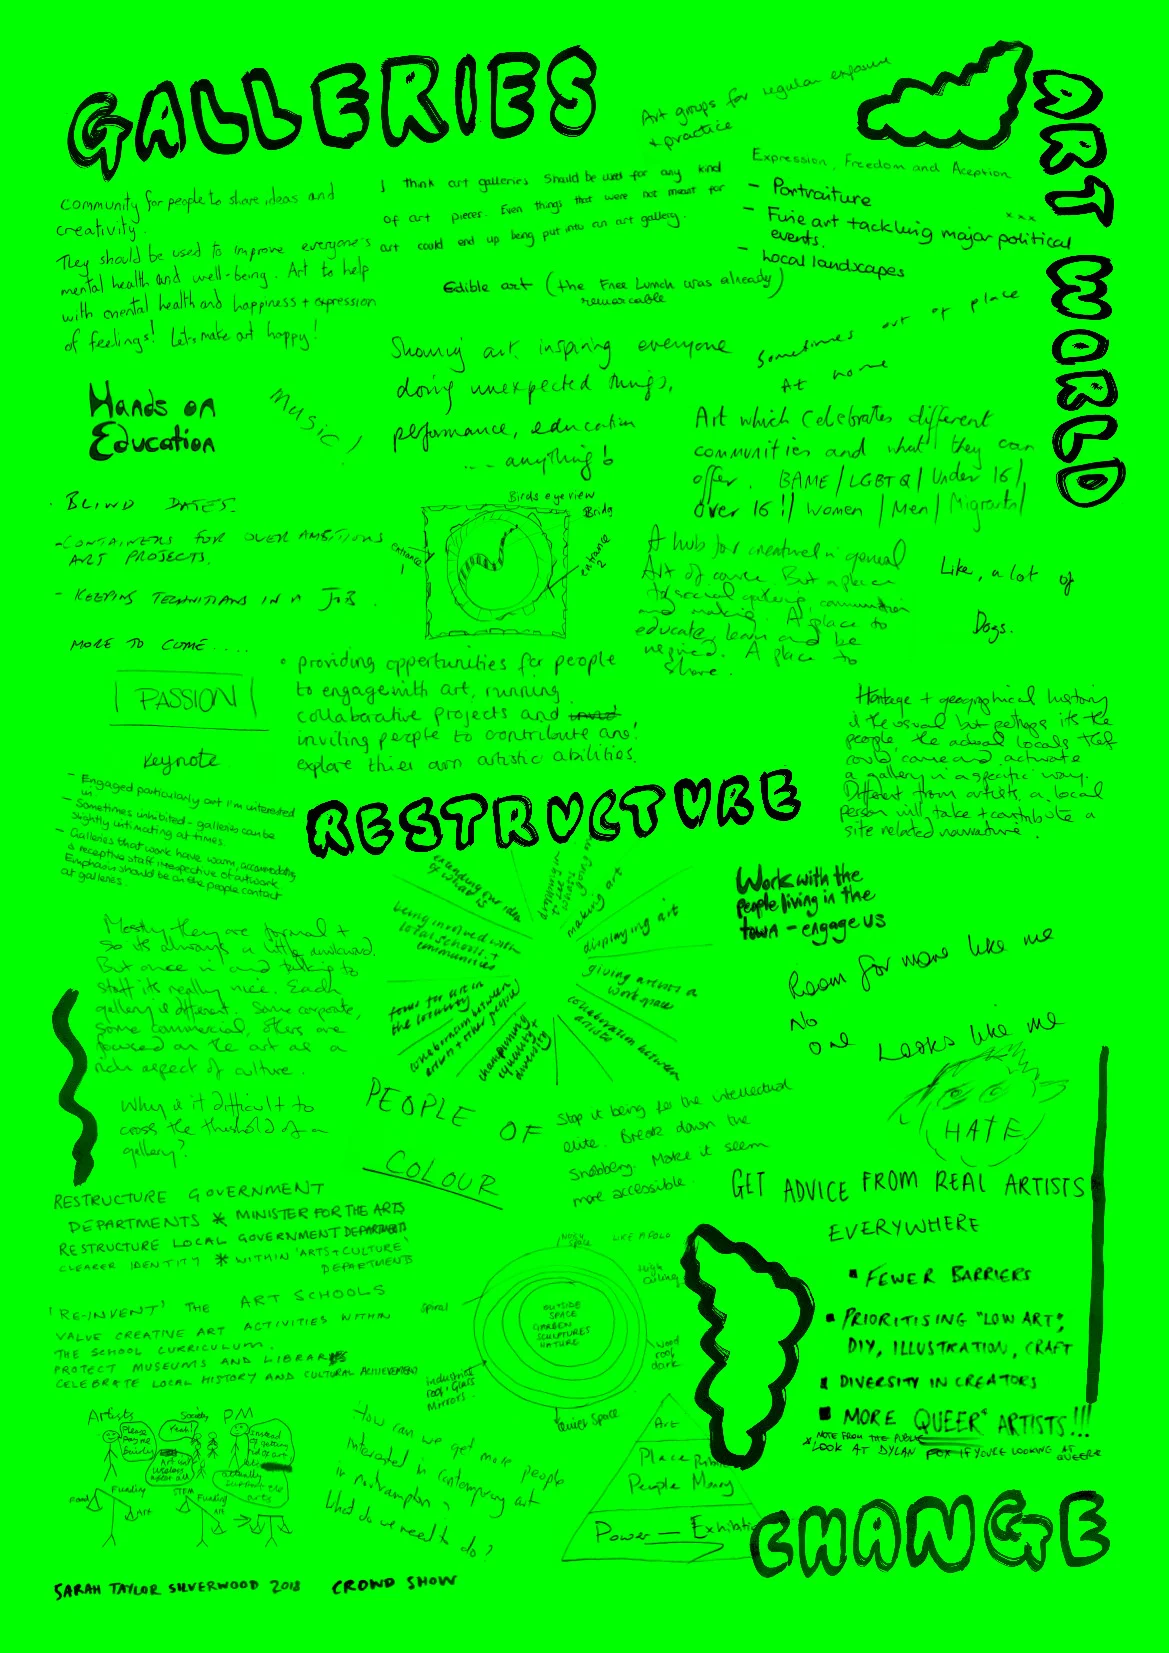 GALLERIES
Art groups for regular exposure
+ practice
ART WORLD
Expression, Freedom and Aception
- Portraiture
- Fine art tackling major political
events.
xxx
- Local landscapes
Community for people to share ideas and
creativity.
They should be used to improve everyone's
mental health and well-being. Art to help
with mental health and happiness + expression
of feelings! Lets make art happy!
I think art galleries should be used for any kind
of art pieces. Even things that were not meant for
art could end up being put into an art gallery.
Edible art (the Free Lunch was already)
remarcable
Sometimes out of place
At home
Showing art, inspiring everyone
doing unexpected things,
performance, education
... anything!
Hands on
Education
Music!
Art which celebrates different
communities and what they can
offer. BAME / LGBTQ / Under 16 /
Over 16!! / Women / Men / Migrants /
- BLIND DATES.
- CONTAINERS FOR OVER AMBITIOUS
ART PROJECTS.
- KEEPING TECHNITIANS IN A JOB.
MORE TO COME....
Birds eye view
Bridg
entrance
1
entrance
2
A hub for creatives in general
Art of course. But a place
to social gathering, communition
and making. A place to
educate, learn and be
inspired. A place to
share.
Like, a lot of
Dogs.
PASSION
Keynote
• providing oppertunities for people
to engage with art, running
collaborative projects and
inviting people to contribute and
explore thier own artistic abilities.
Heritage + geographical history
is the usual but perhaps its the
people, the actual locals that
could come and activate
a gallery in a specific way.
Different from artists, a local
person will take + contribute a
site related narrative.
- Engaged particularly art I'm interested
in
- Sometimes inhibited - galleries can be
slightly intimating at times.
- Galleries that work have warm, accomodating
& receptive staff irrespective of artwork
Emphasis should be on the people contact
at galleries.
RESTRUCTURE
extending our idea
of what is
dropping in
to see
what's
going on
making art
displaying art
giving artists a
workspace
collaboration between
artists
championing
equality +
diversity
collaboration between
artists + other people)
focus for art in
the locality
being involved with
local schools +
communities
Work with the
people living in the
town - engage us
Room for more like me
No
one Looks like me
HATE
Mostly they are formal +
so its always a little awkward.
But once in and talking to
staff its really nice. Each
gallery is different. Some corporate,
some commercial, others are
focused on the art as a
rich aspect of culture.
Why is it difficult to
cross the threshold of a
gallery?
PEOPLE
OF
COLOUR
Stop it being for the intellectual
elite. Break down the
snobbery. Make it seem
more accessible.
GET ADVICE FROM REAL ARTISTS
EVERYWHERE
▪ FEWER BARRIERS
▪ PRIORITISING "LOW ART",
DIY, ILLUSTRATION, CRAFT
▪ DIVERSITY IN CREATORS
▪ MORE QUEER* ARTISTS!!!
* NOTE FROM THE PUBLIC
LOOK AT DYLAN FOX IF YOU'RE LOOKING AT
QUEER
RESTRUCTURE GOVERNMENT
DEPARTMENTS * MINISTER FOR THE ARTS
RESTRUCTURE LOCAL GOVERNMENT DEPARTMENTS
CLEARER IDENTITY * WITHIN 'ARTS + CULTURE'
DEPARTMENTS
'RE-INVENT' THE ART SCHOOLS
VALUE CREATIVE ART ACTIVITIES WITHIN
THE SCHOOL CURRICULUM.
PROTECT MUSEUMS AND LIBRARIES
CELEBRATE LOCAL HISTORY AND CULTURAL ACHIEVEMENT
Noisy
space
LIKE A POLO
High
ceiling
Spiral
OUTSIDE
SPACE
GARDEN
SCULPTURES
NATURE
wood
roof
dark
Industrial
roof + Glass
Mirrors.
Quiet Space
Artists
Society
PM
Please
pay me
fairly
Yeah!
Art isn't
useless
after all
Instead
of getting
rid of art
actually
support the
arts
Funding
STEM
Funding
Art
Art
How can we get more people
interested in contemporary art
in Northampton?
What do we need to do?
Art
Place
People Money
Power — Exhibition
CHANGE
SARAH TAYLOR SILVERWOOD 2018 CROWD SHOW